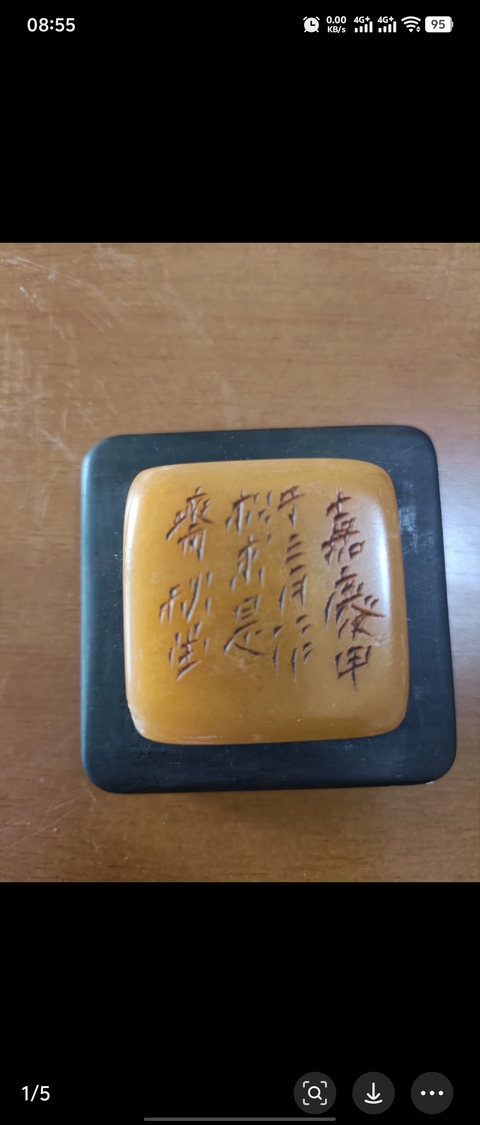 08:55
0.00 KB/s 4G+ 4G+ 95
嘉慶甲
子三月作
於求是
齋 秋堂
1/5